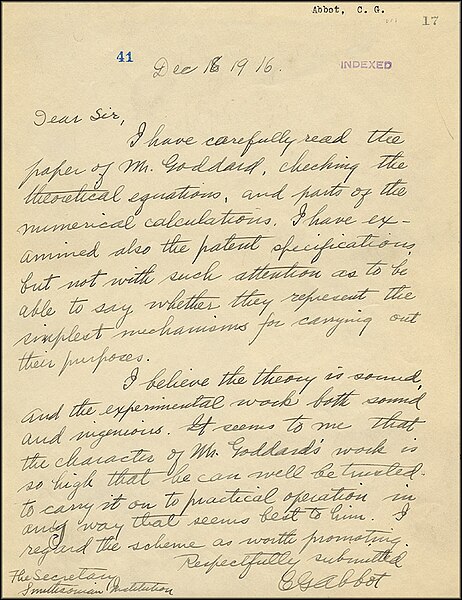 Abbot, C. G.
17
41
INDEXED
Dec 16 1916.
Dear Sir,
I have carefully read the
paper of Mr. Goddard, checking the
theoretical equations, and parts of the
numerical calculations. I have ex-
amined also the patent specifications,
but not with such attention as to be
able to say whether they represent the
simplest mechanisms for carrying out
their purposes.
I believe the theory is sound,
and the experimental work both sound
and ingenious. It seems to me that
the character of Mr. Goddard's work is
so high that he can well be trusted
to carry it on to practical operation in
any way that seems best to him. I
regard the scheme as worth promoting.
Respectfully submitted
CGAbbot
The Secretary
Smithsonian Institution